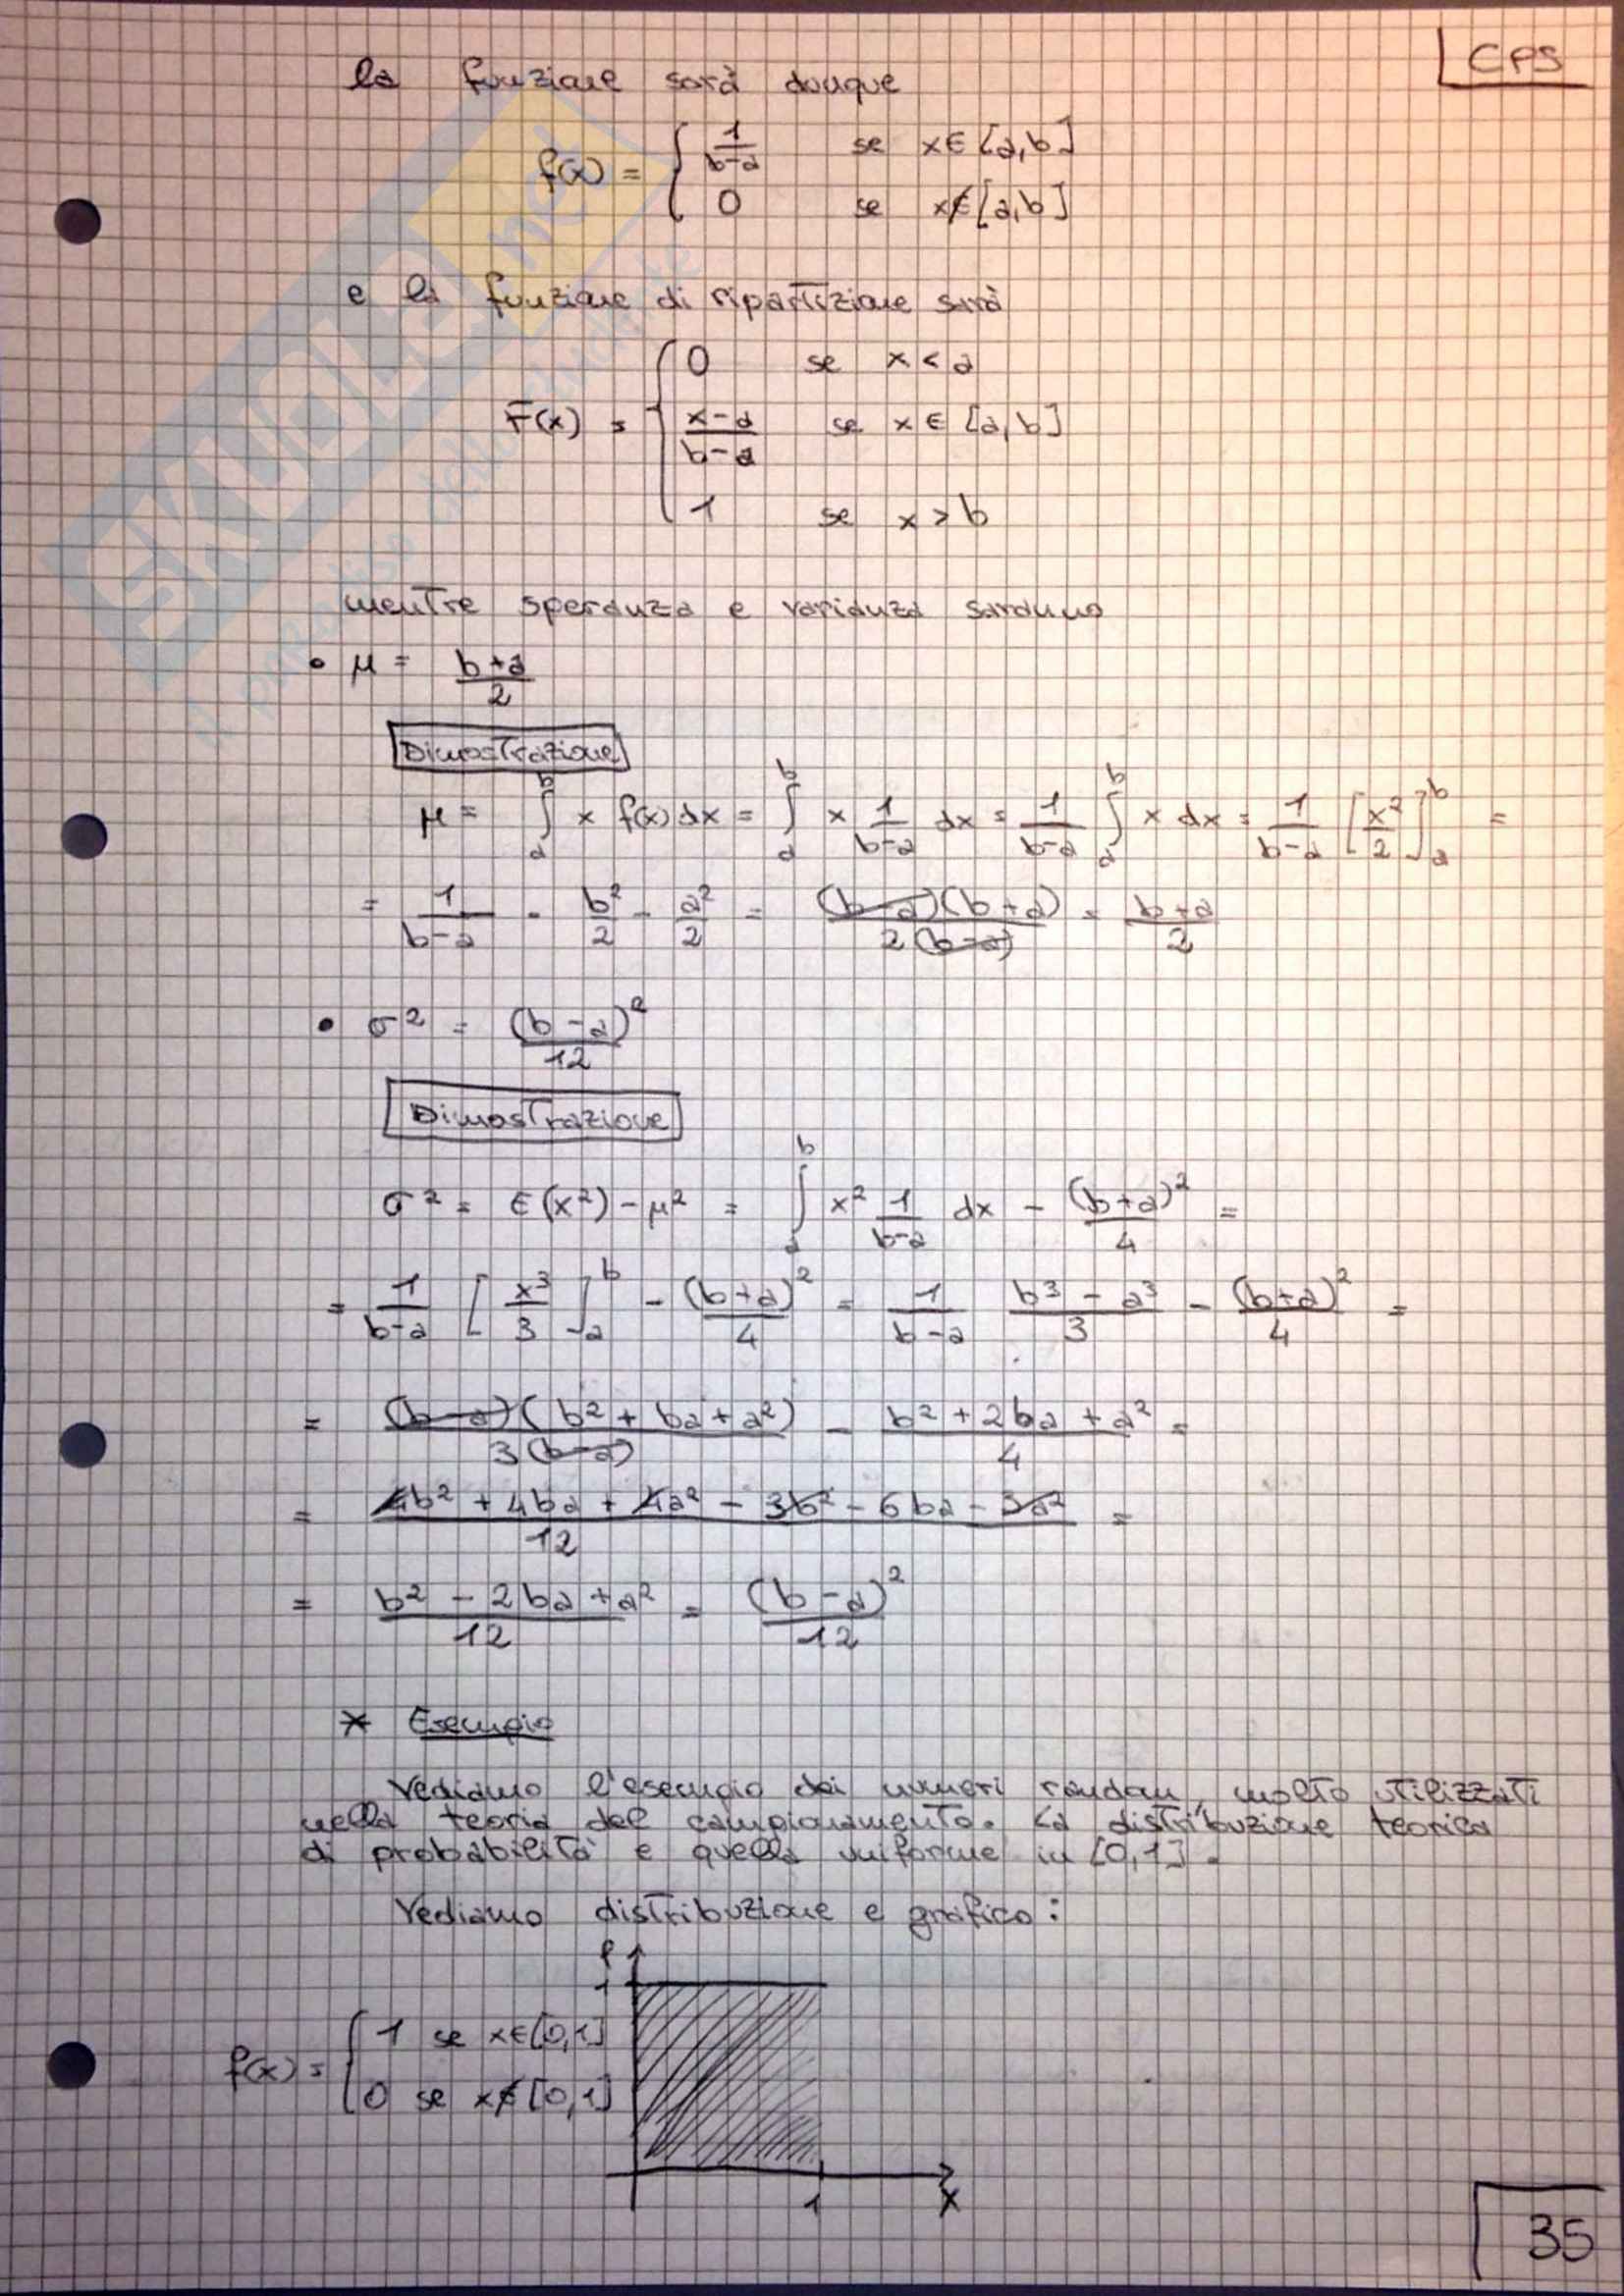 CPS
la funzione sarà dunque
f(x) = { 1/(b-a) se x∈[a,b]
0 se x∉[a,b]
e la funzione di ripartizione sarà
F(x) = { 0 se x < a
(x-a)/(b-a) se x ∈ [a,b]
1 se x > b
mentre speranza e varianza saranno
• μ = (b+a)/2
Dimostrazione
μ = ∫_a^b x f(x) dx = ∫_a^b x 1/(b-a) dx = 1/(b-a) ∫_a^b x dx = 1/(b-a) [x²/2]_a^b =
= 1/(b-a) · b²/2 - a²/2 = (b-a)(b+a)/2(b-a) = (b+a)/2
• σ² = (b-a)²/12
Dimostrazione
σ² = E(x²) - μ² = ∫_a^b x² 1/(b-a) dx - (b+a)²/4 =
= 1/(b-a) [x³/3]_a^b - (b+a)²/4 = 1/(b-a) (b³ - a³)/3 - (b+a)²/4 =
= (b-a)(b² + ba + a²)/3(b-a) - (b² + 2ba + a²)/4 =
= (4b² + 4ba + 4a² - 3b² - 6ba - 3a²)/12 =
= (b² - 2ba + a²)/12 = (b-a)²/12
* Esempio
Vediamo l'esempio dei numeri random, molto utilizzati
nella teoria del campionamento. La distribuzione teorica
di probabilità e quella uniforme in [0,1].
Vediamo distribuzione e grafico:
f
1
f(x) = { 1 se x∈[0,1]
0 se x∉[0,1]
1 x
35
SKUOLA.net
il paradiso dello studente